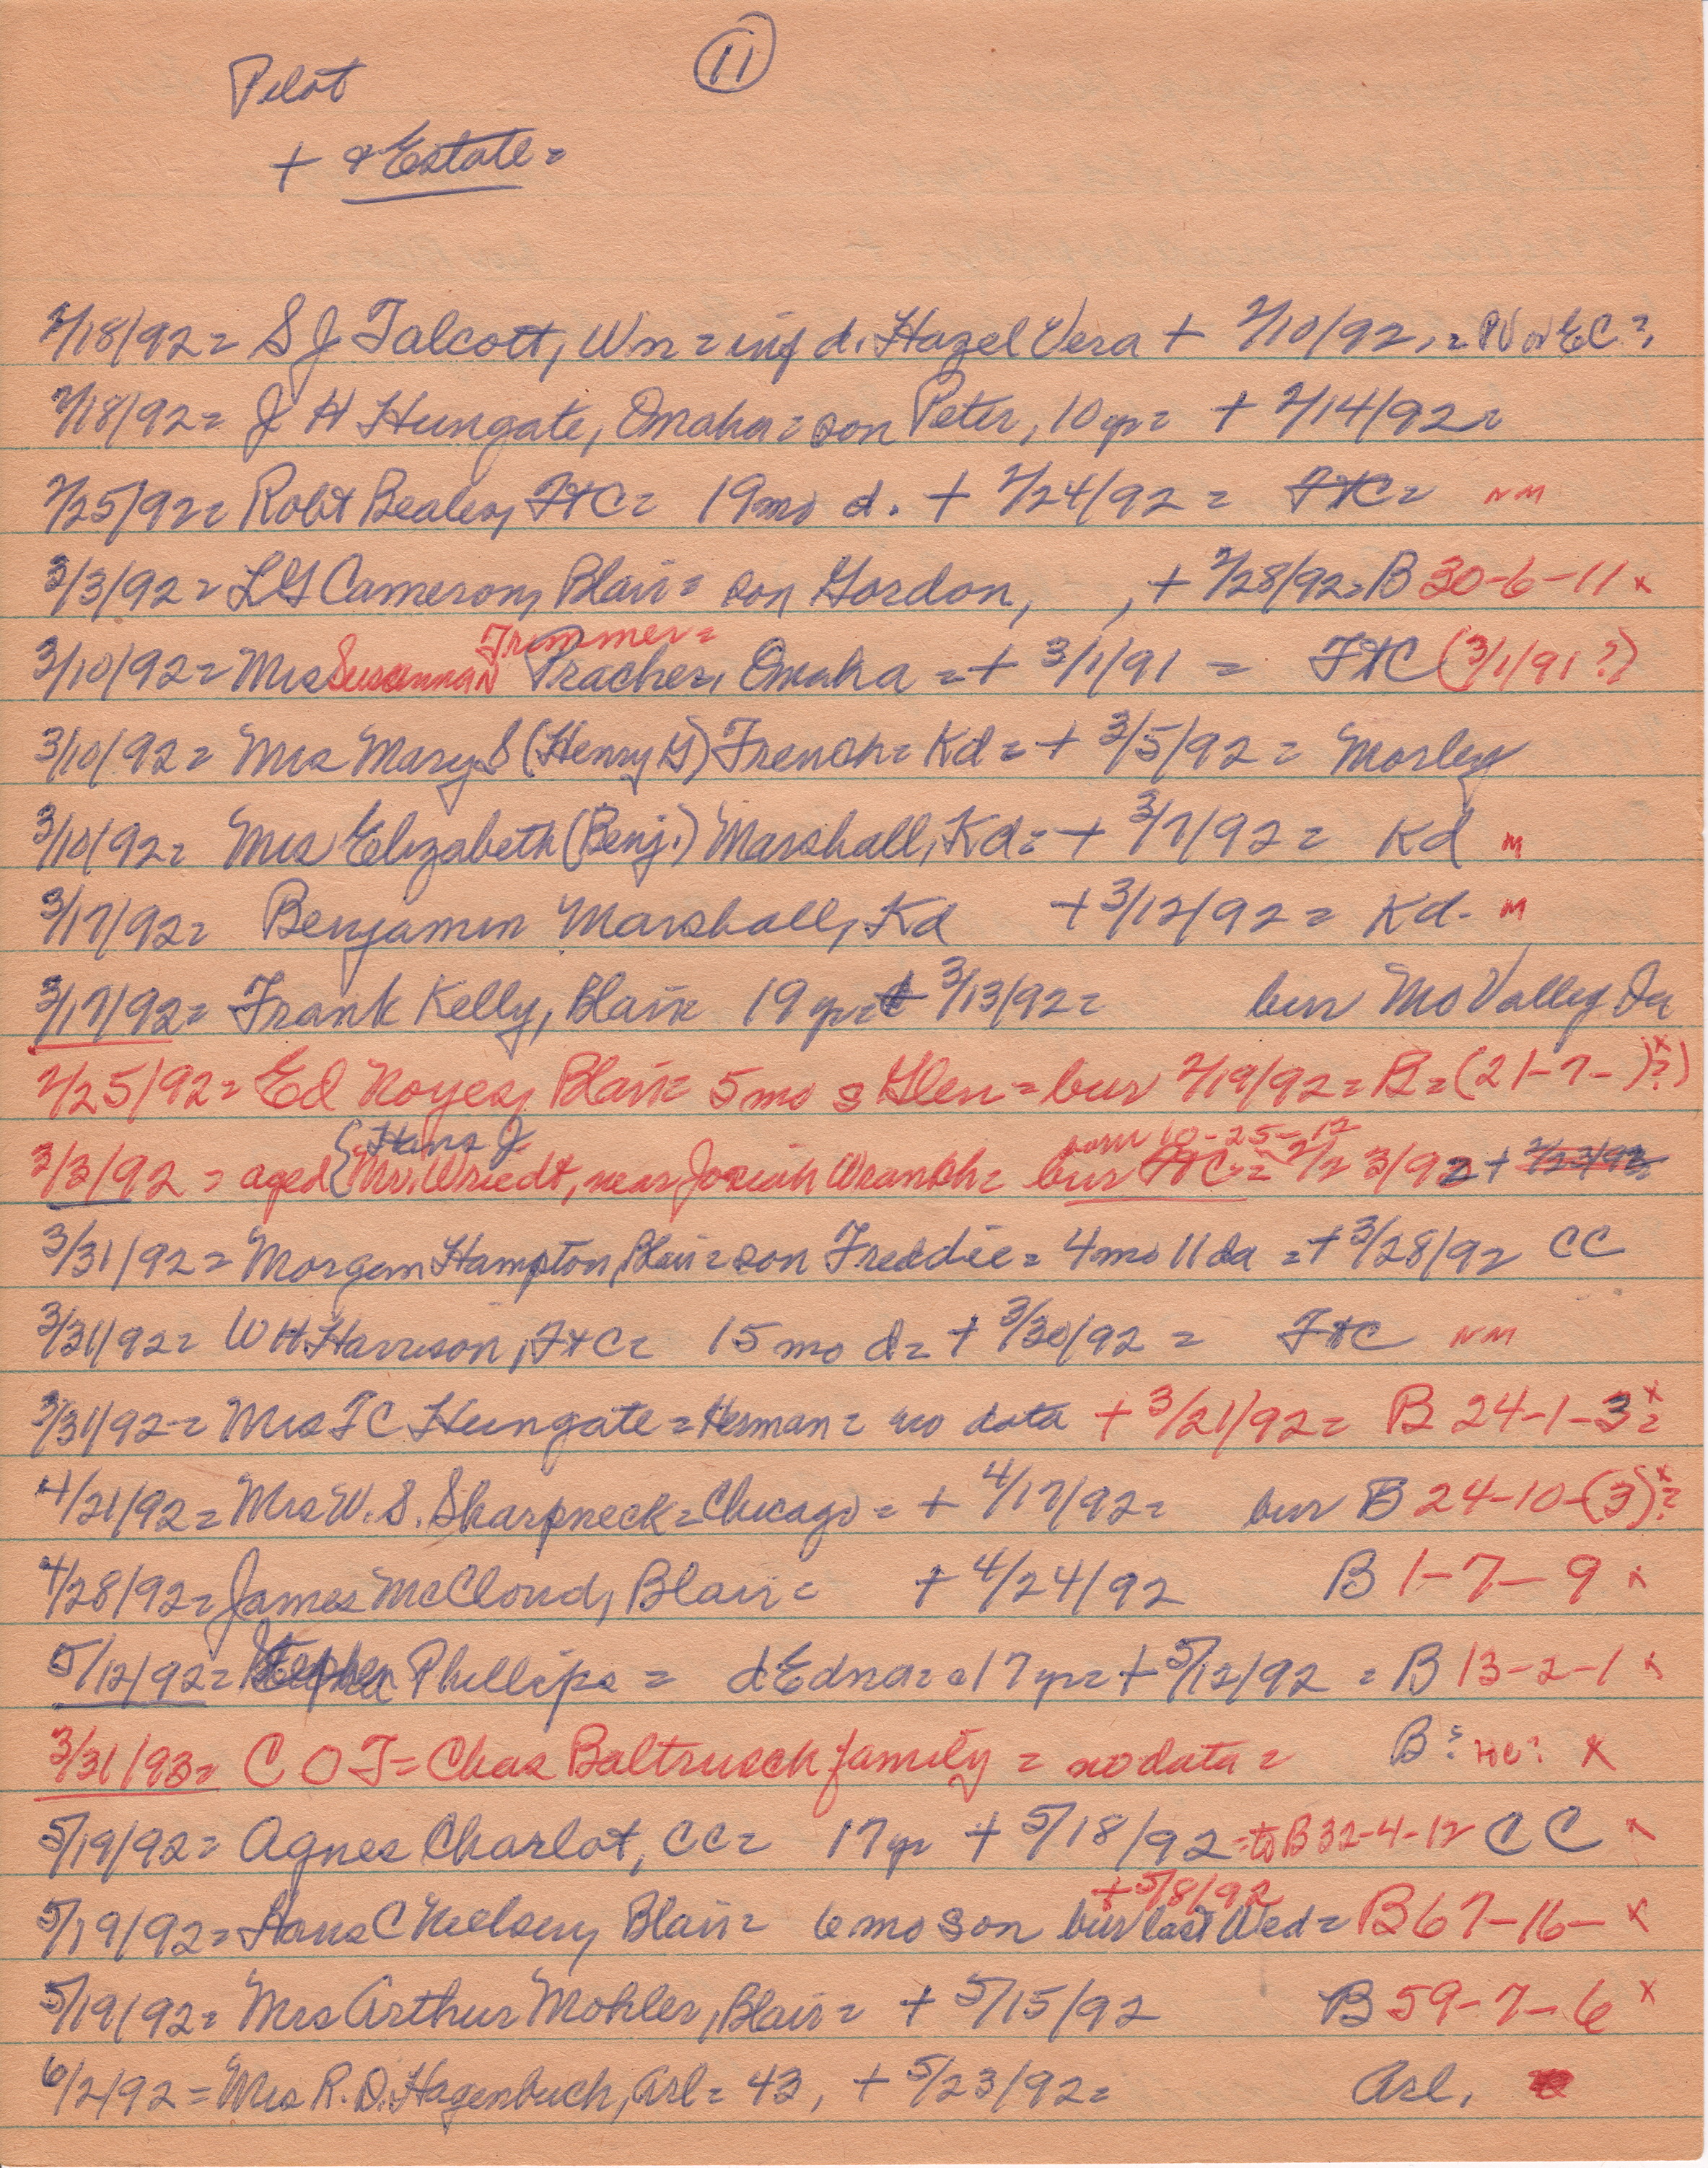 11
Pilot
+ & Estate =
2/18/92 = S J Talcott, Wn = inf d. Hazel Vera + 2/10/92, = PV or EC?,
2/18/92 = J H Hungate, Omaha = son Peter, 10 yr = + 2/14/92 =
2/25/92 = Robt Beales, FtC = 19 mo d. + 2/24/92 = FtC = NM
3/3/92 = L G Cameron, Blair = son Gordon, , + 2/28/92 = B 30-6-11 x
Trimmer =
3/10/92 = Mrs Susannah Pracher, Omaha = + 3/1/91 = FtC (3/1/91?)
3/10/92 = Mrs Mary S (Henry G) French = Kd = + 3/5/92 = Morley
3/10/92 = Mrs Elizabeth (Benj.) Marshall, Kd = + 3/7/92 = Kd M
3/17/92 = Benjamin Marshall, Kd + 3/12/92 = Kd - M
3/17/92 = Frank Kelly, Blair 19 yr = + 3/13/92 = bur Mo Valley Ia
2/25/92 = Ed Noyes, Blair = 5 mo s Glen = bur 2/19/92 = B = (21-7- )x?)
{Hans J born 10-25-12
3/3/92 = aged {Mr. Wriedt, near Josiah = bur FtC = 2/23/92 + 2/23/92
3/31/92 = Morgan Hampton, Blair = son Freddie = 4 mo 11 da = + 3/28/92 CC
3/31/92 = W H Harrison, FtC = 15 mo d = + 3/30/92 = FtC NM
3/31/92 = Mrs T C Hungate = Herman = no data + 3/21/92 = B 24-1-3 x =
4/21/92 = Mrs W. S. Sharpneck = Chicago = + 4/17/92 = bur B 24-10-(3) x ?
4/28/92 = James McCloud, Blair = + 4/24/92 B 1-7-9 x
5/12/92 = Stephen Phillips = d Edna = 17 yr = + 5/12/92 = B 13-2-1 x
3/31/93 = C O T = Chas Baltrusch family = no data = B? HC? x
5/19/92 = Agnes Charlot, CC = 17 yr + 5/18/92 = to B 32-4-12 CC x
+ 5/8/92
5/19/92 = Hans C Nielsen, Blair = 6 mo son bur last Wed = B 67-16- x
5/19/92 = Mrs Arthur Mohler, Blair = + 5/15/92 B 59-7-6 x
6/2/92 = Mrs R. D. Hagenbuch, Arl = 43, + 5/23/92 = Arl.